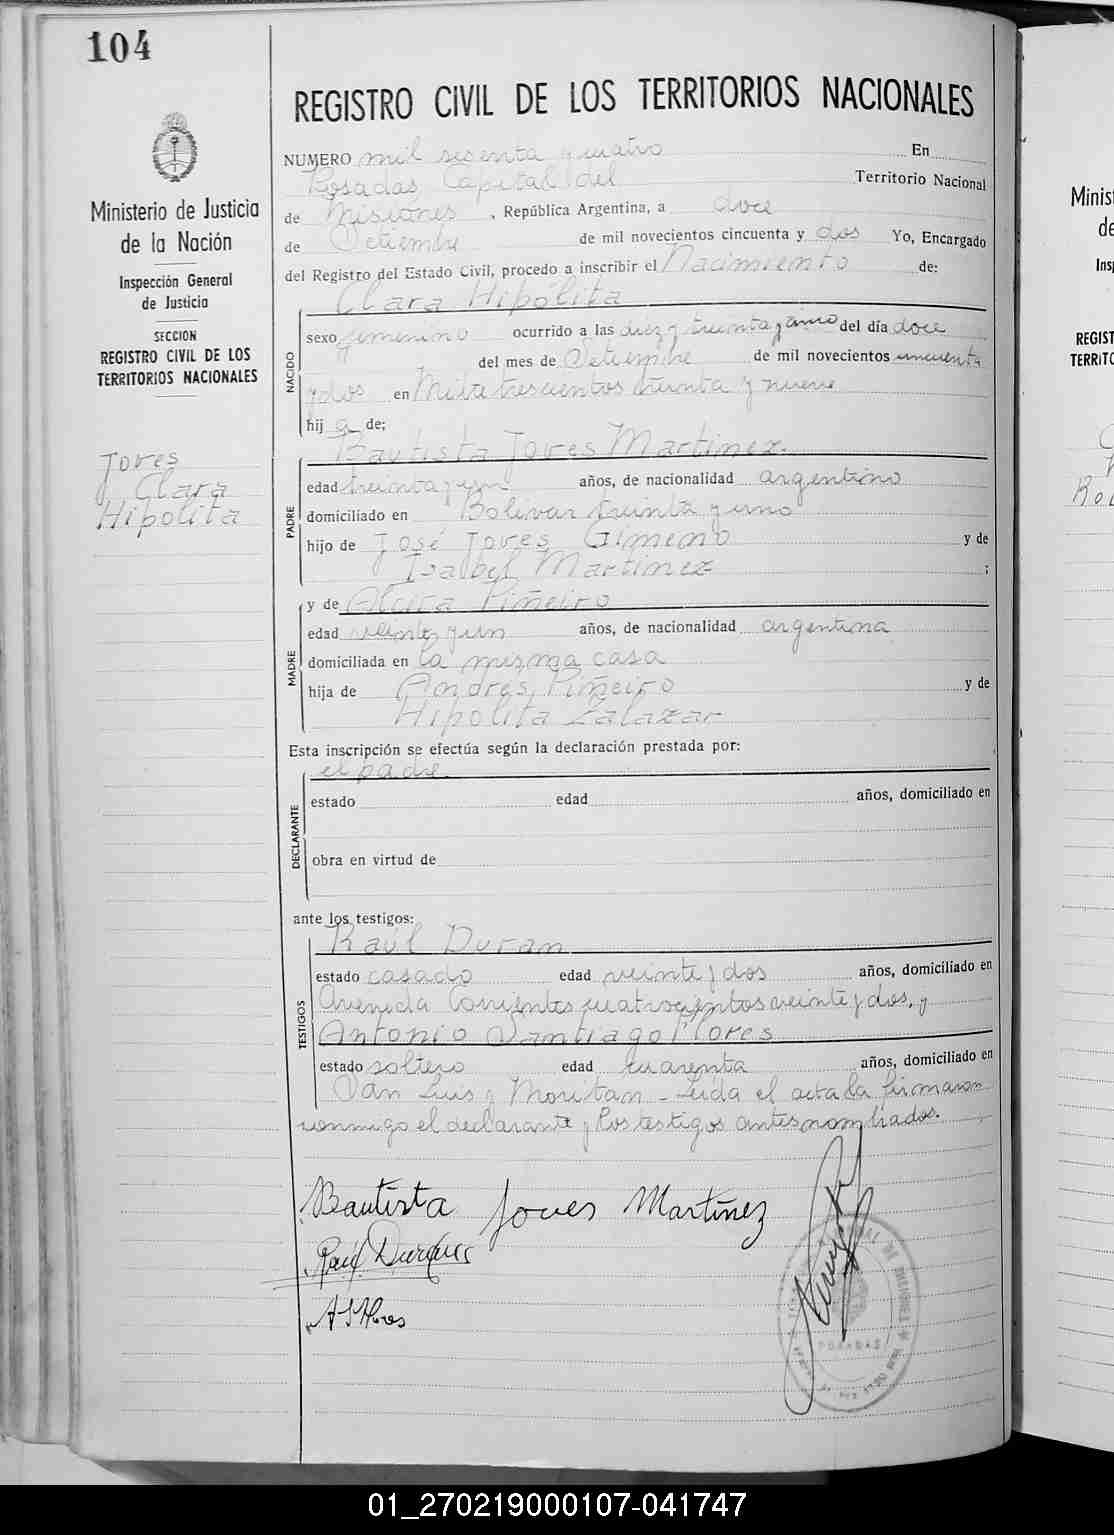 104
Ministerio de Justicia
de la Nación
Inspección General
de Justicia
SECCION
REGISTRO CIVIL DE LOS
TERRITORIOS NACIONALES
Joves
Clara
Hipólita
REGISTRO CIVIL DE LOS TERRITORIOS NACIONALES
NUMERO mil sesenta y cuatro En
Posadas Capital del Territorio Nacional
de Misiones , República Argentina, a doce
de Setiembre de mil novecientos cincuenta y dos Yo, Encargado
del Registro del Estado Civil, procedo a inscribir el Nacimiento de:
Clara Hipólita
NACIDO
sexo femenino ocurrido a las diez y treinta y cinco del día doce
del mes de Setiembre de mil novecientos cincuenta
y dos en Mitre trescientos treinta y nueve
hij a de;
Bautista Joves Martinez.
PADRE
edad treinta y un años, de nacionalidad argentino
domiciliado en Bolivar treinta y uno
hijo de José Joves Gimeno y de
Isabel Martinez ;
MADRE
y de Alcira Piñeiro
edad veinte y un años, de nacionalidad argentina
domiciliada en la misma casa
hija de Andres Piñeiro y de
Hipólita Zalazar
Esta inscripción se efectúa según la declaración prestada por:
el padre.
DECLARANTE
estado edad años, domiciliado en
obra en virtud de
ante los testigos:
Raúl Duran
TESTIGOS
estado casado edad veinte y dos años, domiciliado en
Avenida Corrientes cuatrocientos veinte y dos, y
Antonio Santiago Flores
estado soltero edad cuarenta años, domiciliado en
San Luis y Moritan - Leida el acta la firmaron
conmigo el declarante y los testigos antes nombrados.
Bautista Joves Martínez
Raúl Duran
A S Flores
POSADAS
01_270219000107-041747